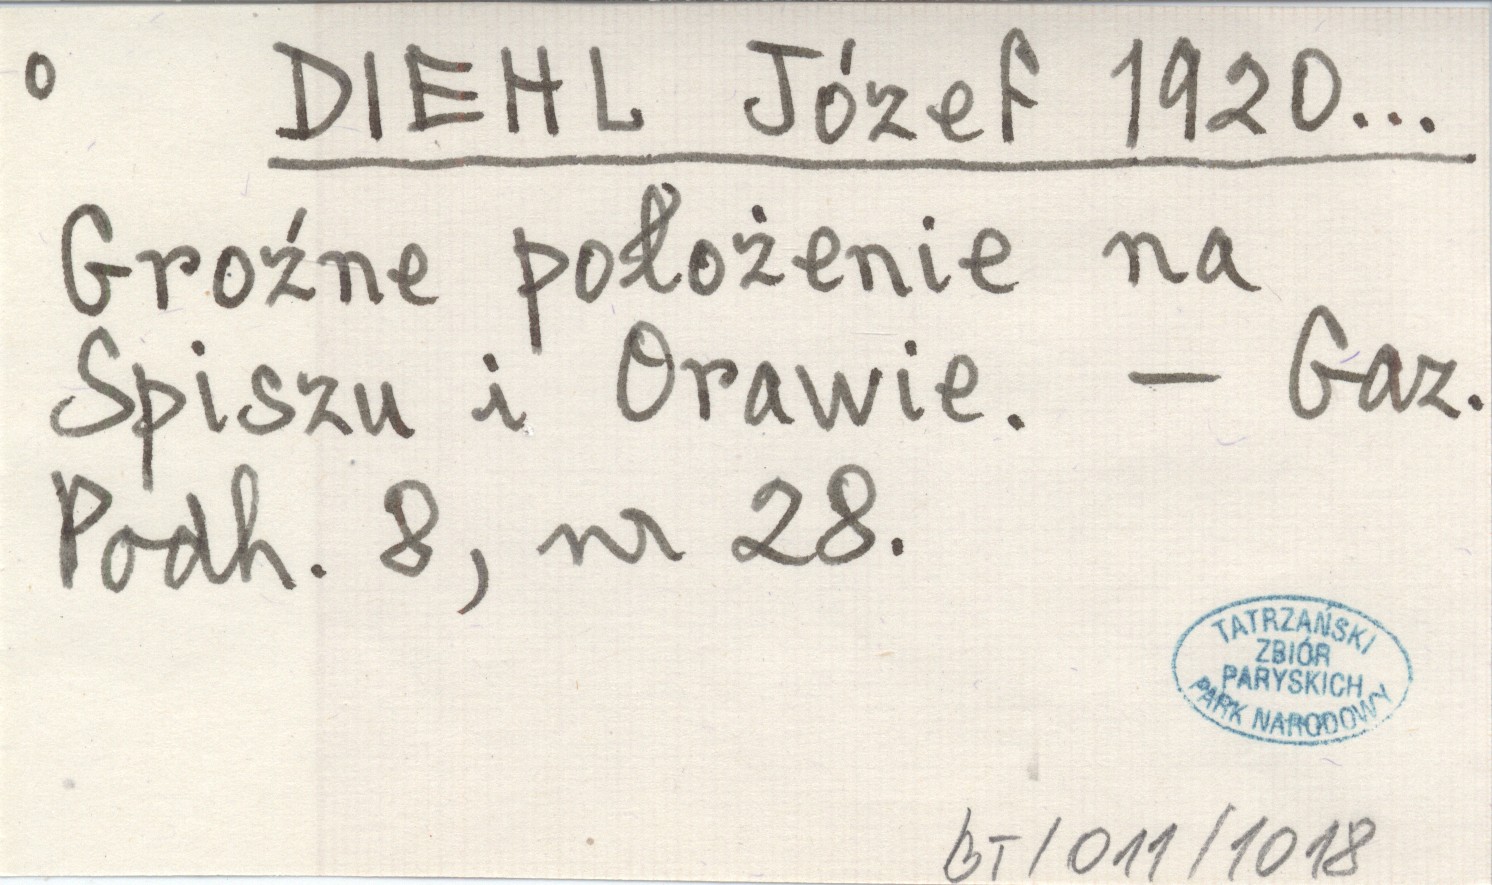 o DIEHL Józef 1920...
Groźne położenie na
Spiszu i Orawie. — Gaz.
Podh. 8, nr 28.
TATRZAŃSKI
ZBIÓR
PARYSKICH
PARK NARODOWY
BT/011/1018